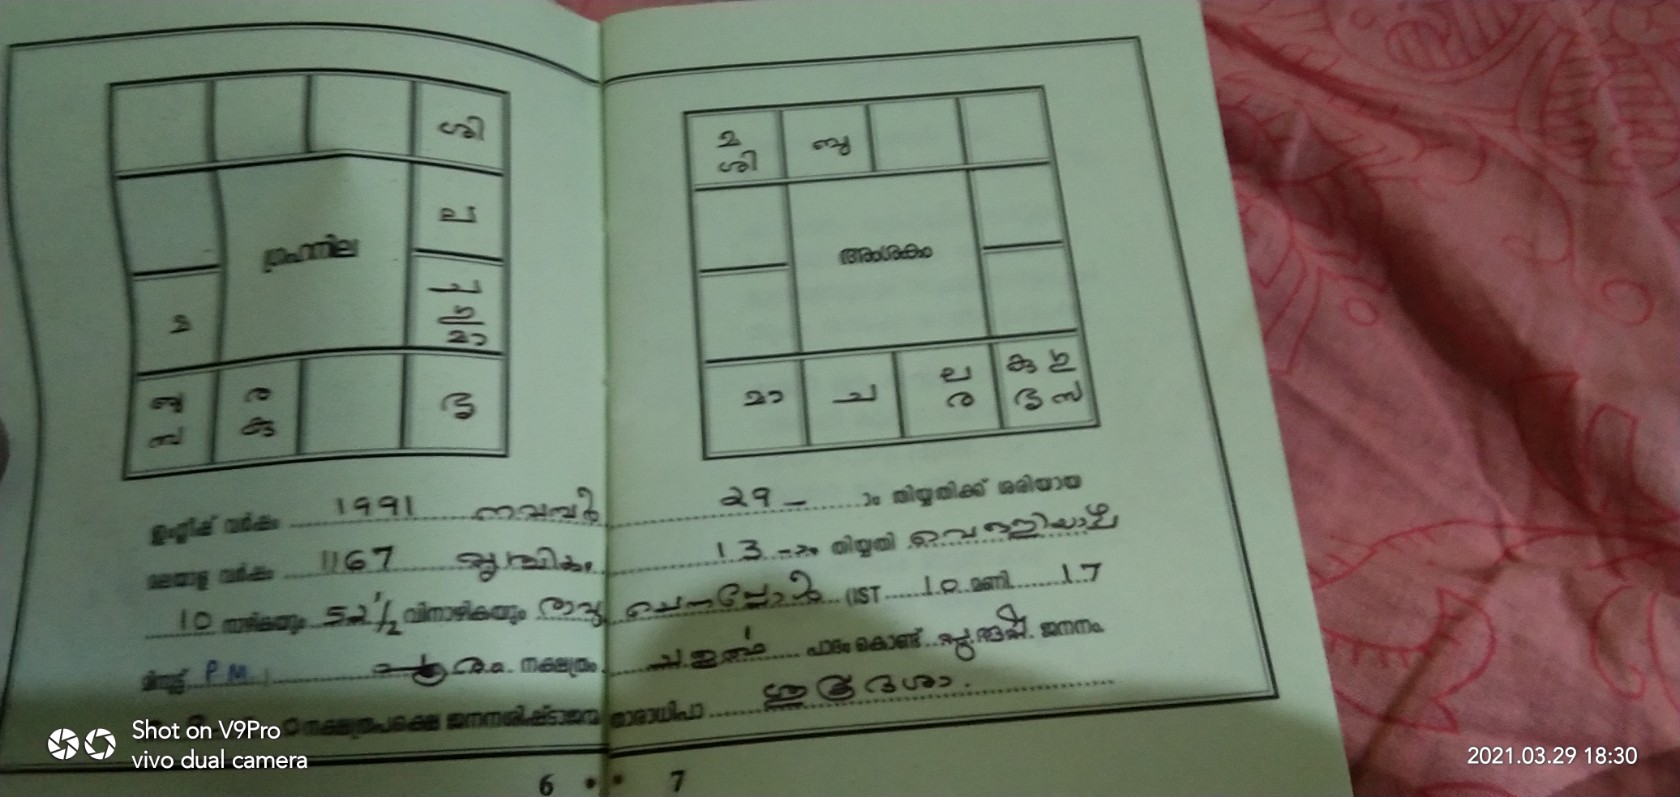 ശി
ല
മ
ഗ്രഹനില
ബു
സ
ര
കു
മാ
മ
ശി
ബു
അംശകം
മാ
ച
ല
ര
കു
സ
ഇംഗ്ലീഷ് വർഷം 1991 നവമ്പർ 29 ാം തിയ്യതിക്ക് ശരിയായ
മലയാള വർഷം 1167 വൃശ്ചികം 13 ാം തിയ്യതി വെള്ളിയാഴ്ച
10 നാഴികയും 52 1/2 വിനാഴികയും രാവു ചെന്നപ്പോൾ (IST 10 മണി 17
മിനുട്ട് P.M. നക്ഷത്രം പാദം കൊണ്ട് ജനനം
നക്ഷത്രപക്ഷെ ജനനശിഷ്ടാജന്മ താരാധിപാ ശുക്ര ദശാ.
6 • • 7
Shot on V9Pro
vivo dual camera
2021.03.29 18:30